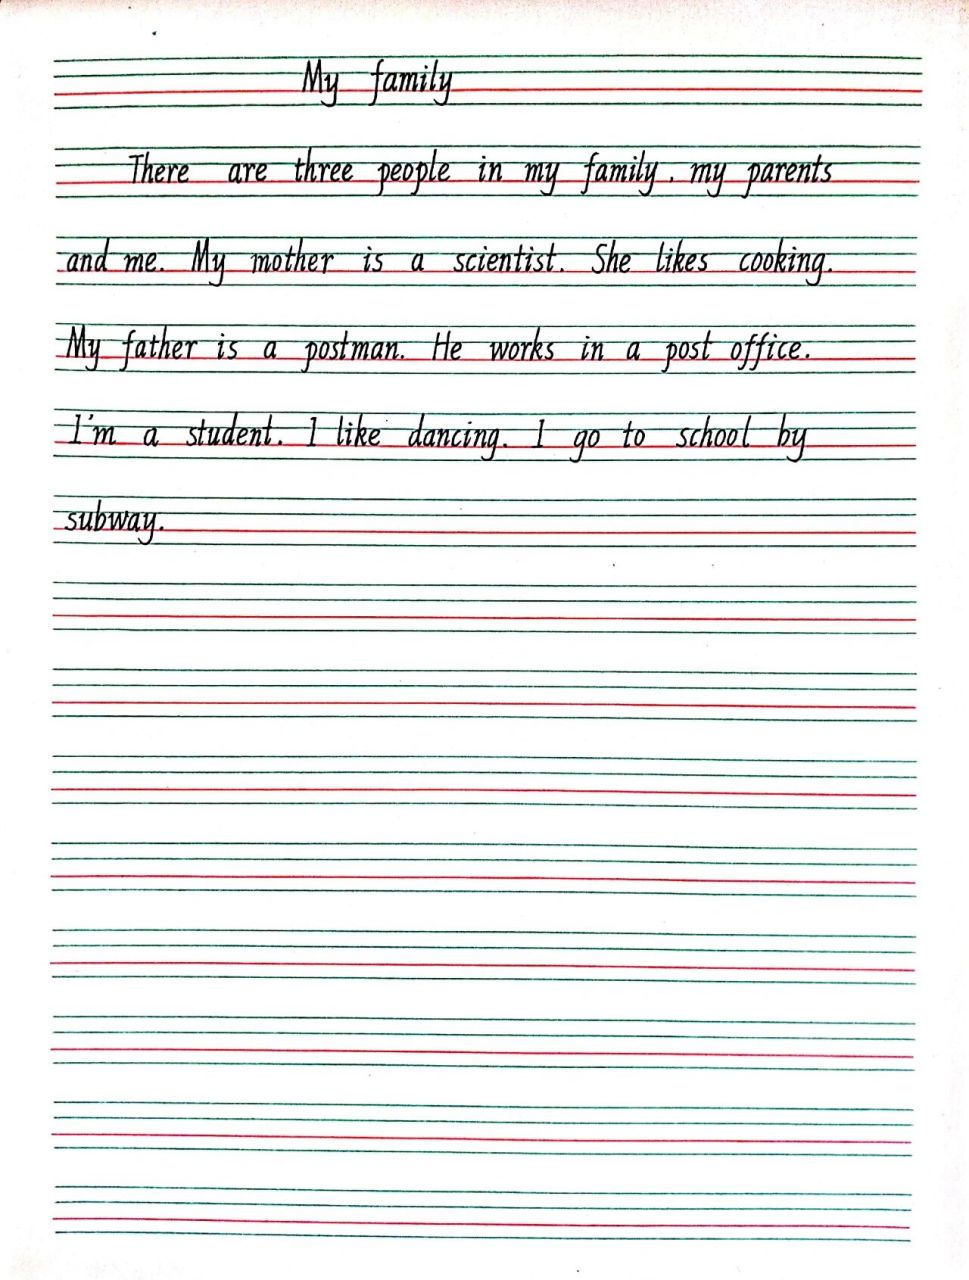 My family
There are three people in my family . my parents
and me. My mother is a scientist. She likes cooking.
My father is a postman. He works in a post office.
I'm a student. I like dancing. I go to school by
subway.